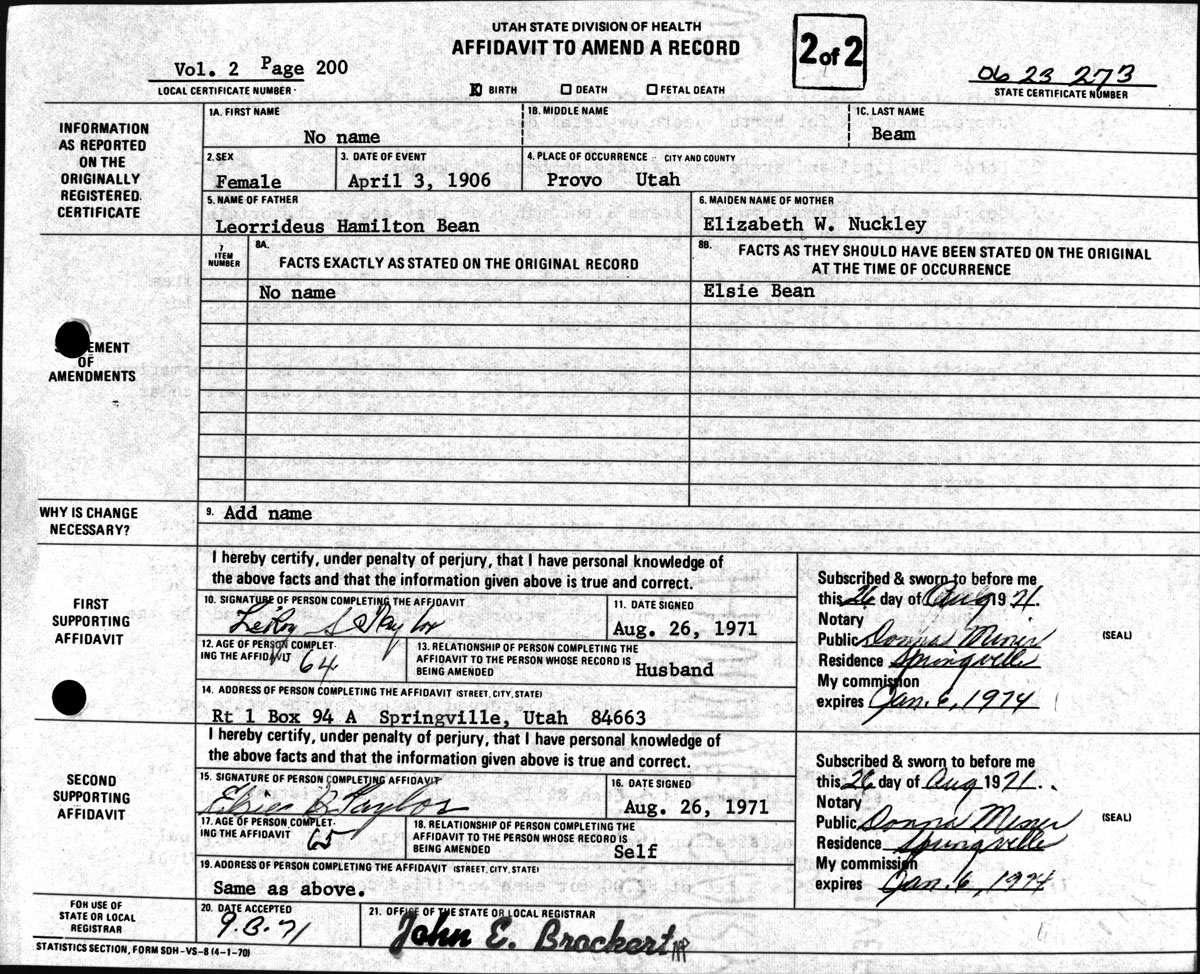 UTAH STATE DIVISION OF HEALTH
AFFIDAVIT TO AMEND A RECORD
2 of 2
Vol. 2 Page 200
LOCAL CERTIFICATE NUMBER
X BIRTH DEATH FETAL DEATH
06 23 273
STATE CERTIFICATE NUMBER
INFORMATION
AS REPORTED
ON THE
ORIGINALLY
REGISTERED
CERTIFICATE
1A. FIRST NAME 1B. MIDDLE NAME 1C. LAST NAME
No name Beam
2. SEX 3. DATE OF EVENT 4. PLACE OF OCCURRENCE - CITY AND COUNTY
Female April 3, 1906 Provo Utah
5. NAME OF FATHER 6. MAIDEN NAME OF MOTHER
Leorrideus Hamilton Bean Elizabeth W. Nuckley
7 ITEM NUMBER
8A. FACTS EXACTLY AS STATED ON THE ORIGINAL RECORD
8B. FACTS AS THEY SHOULD HAVE BEEN STATED ON THE ORIGINAL
AT THE TIME OF OCCURRENCE
No name Elsie Bean
EMENT
OF
AMENDMENTS
WHY IS CHANGE
NECESSARY?
9. Add name
FIRST
SUPPORTING
AFFIDAVIT
I hereby certify, under penalty of perjury, that I have personal knowledge of
the above facts and that the information given above is true and correct.
10. SIGNATURE OF PERSON COMPLETING THE AFFIDAVIT 11. DATE SIGNED
LeRoy S Taylor Aug. 26, 1971
12. AGE OF PERSON COMPLET-
ING THE AFFIDAVIT 64
13. RELATIONSHIP OF PERSON COMPLETING THE
AFFIDAVIT TO THE PERSON WHOSE RECORD IS
BEING AMENDED Husband
14. ADDRESS OF PERSON COMPLETING THE AFFIDAVIT (STREET, CITY, STATE)
Rt 1 Box 94 A Springville, Utah 84663
Subscribed & sworn to before me
this 26 day of Aug 1971.
Notary
Public Donna Miner
(SEAL)
Residence Springville
My commission
expires Jan. 6, 1974
SECOND
SUPPORTING
AFFIDAVIT
I hereby certify, under penalty of perjury, that I have personal knowledge of
the above facts and that the information given above is true and correct.
15. SIGNATURE OF PERSON COMPLETING AFFIDAVIT 16. DATE SIGNED
Elsie B Taylor Aug. 26, 1971
17. AGE OF PERSON COMPLET-
ING THE AFFIDAVIT 65
18. RELATIONSHIP OF PERSON COMPLETING THE
AFFIDAVIT TO THE PERSON WHOSE RECORD IS
BEING AMENDED Self
19. ADDRESS OF PERSON COMPLETING THE AFFIDAVIT (STREET, CITY, STATE)
Same as above.
Subscribed & sworn to before me
this 26 day of Aug 1971.
Notary
Public Donna Miner
(SEAL)
Residence Springville
My commission
expires Jan. 6, 1974
FOR USE OF
STATE OR LOCAL
REGISTRAR
20. DATE ACCEPTED 21. OFFICE OF THE STATE OR LOCAL REGISTRAR
John E. Brockert
STATISTICS SECTION, FORM SDH-VS-8 (4-1-70)